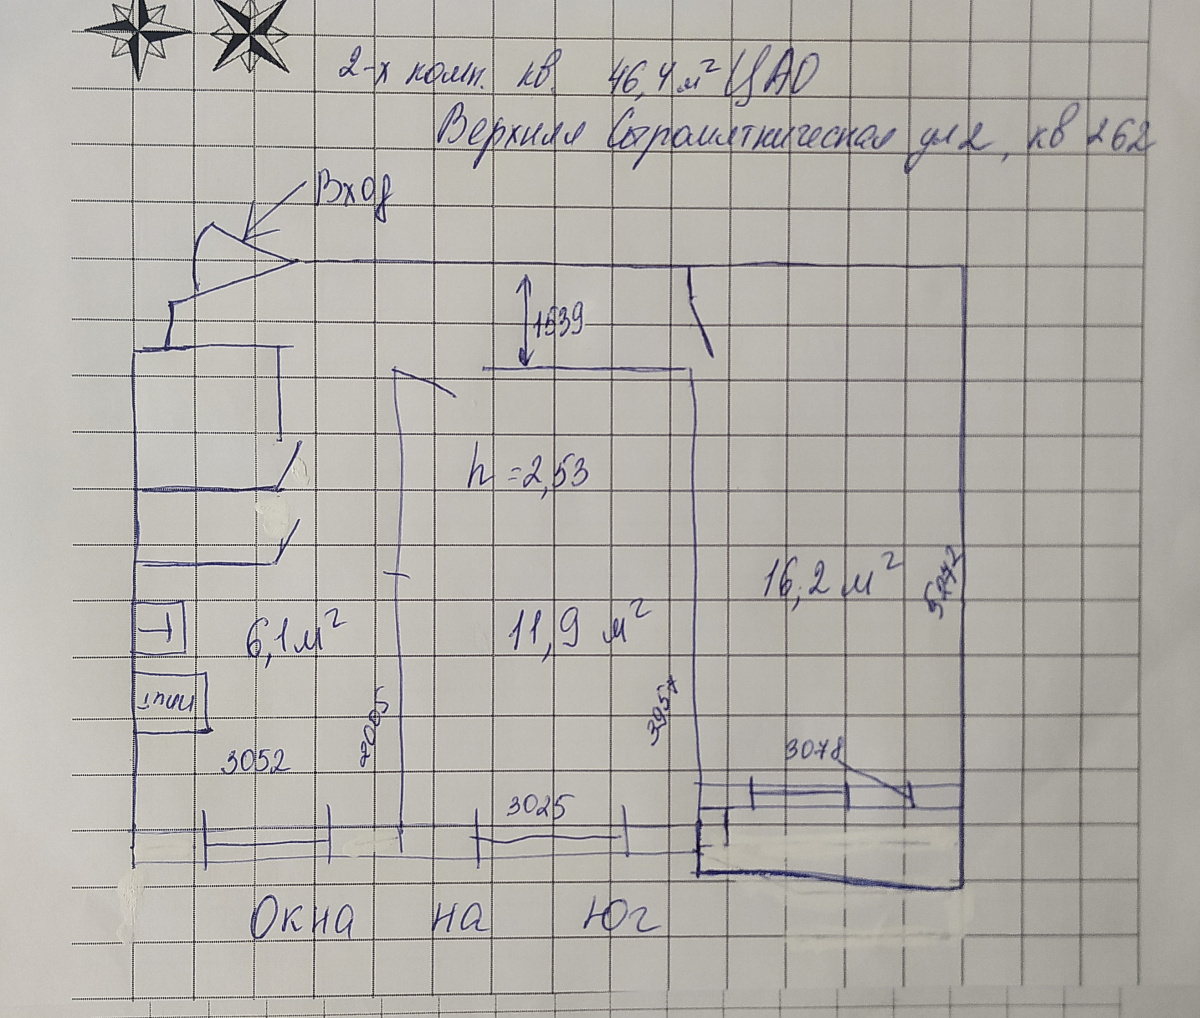 2-х комн. кв. 46,4 м² ЦАО
Верхняя Сыромятническая ул 2, кв 262
Вход
1539
h = 2,53
16,2 м²
5242
6,1 м²
11,9 м²
Т
плит
2005
3957
3052
3078
3025
Окна на Юг